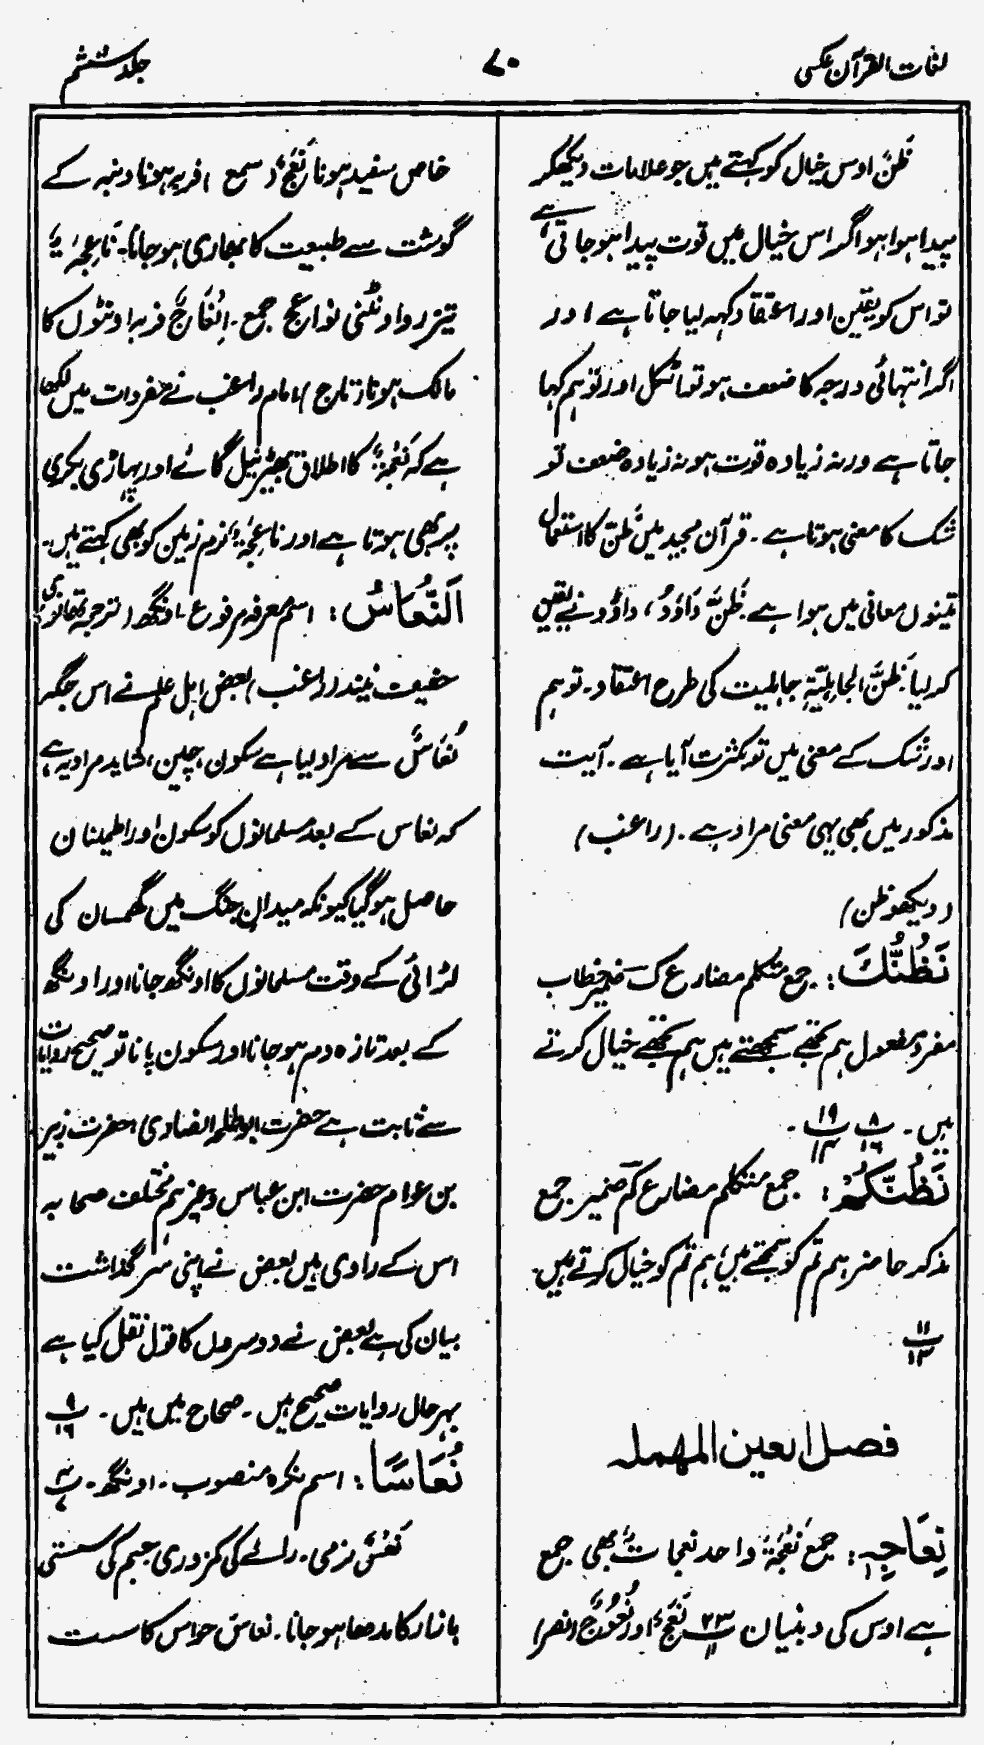 لغات القرآن عکسی
۷۰
جلد ششم
ظنّ اوس خیال کو کہتے ہیں جو علامات دیکھکر
پیدا ہوا ہو اگر اس خیال میں قوت پیدا ہو جاتی ہے
تو اس کو یقین اور اعتقاد کہہ لیا جاتا ہے اور
اگر انتہائی درجہ کا ضعف ہو تو اٹکل اور توہم کہا
جاتا ہے ورنہ زیادہ قوت ہو نہ زیادہ ضعف تو
شک کا معنی ہوتا ہے ۔ قرآن مجید میں ظنّ کا استعمال
تینوں معانی میں ہوا ہے ظَنَّ دَاوٗدُ، داؤد نے یقین
کر لیا ظَنَّ الجاہلیّۃِ جاہلیت کی طرح اعتقاد ۔ توہم
اور شک کے معنی میں تو بکثرت آیا ہے ۔ آیت
مذکور میں بھی یہی معنی مراد ہے ۔ (راغب)
(دیکھو ظن)
نَظُنُّكَ : جمع متکلم مضارع کَ ضمیر خطاب
مفرد مفعول ہم تجھے سمجھتے ہیں ہم تجھے خیال کرتے
ہیں ۔ ۸/۱۶ ۱۹/۱۴ ۔
نَظُنُّكُمْ : جمع متکلم مضارع کُم ضمیر جمع
مذکر حاضر ہم تم کو سمجھتے ہیں، ہم تم کو خیال کرتے ہیں۔
۱۱/۱۳
فصل العین المهمله
نِعَاجِہٖ : جمع نَعْجَةٌ واحد نعجاتٌ بھی جمع
ہے اوس کی دنبیاں ۲۳/۱۱ نَعَجٌ اور نُعُوْجٌ (نصر)
خاص سفید ہونا نَعَجٌ (سمع) فربہ ہونا دنبہ کے
گوشت سے طبیعت کا بھاری ہو جانا۔ نَاعِجَۃٌ
تیز رو اونٹنی نواعج جمع ۔ اِنْعَاجٌ فربہ اونٹوں کا
مالک ہونا (تاج) امام راغب نے مفردات میں لکھا
ہے کہ نَعْجَۃٌ کا اطلاق بھیڑ نیل گائے اور پہاڑی بکری
پر بھی ہوتا ہے اور ناعِجَۃٌ نرم زمین کو بھی کہتے ہیں۔
اَلنُّعَاسُ : اسم معرفہ مرفوع ۔ اونگھ (ترجمہ تھانوی)
خفیف نیند (راغب) بعض اہل علم نے اس جگہ
نُعَاسٌ سے مراد لیا ہے سکون، چین، شاید مراد یہ ہے
کہ نعاس کے بعد مسلمانوں کو سکون اور اطمینان
حاصل ہو گیا کیونکہ میدان جنگ میں گھمسان کی
لڑائی کے وقت مسلمانوں کا اونگھ جانا اور اونگھ
کے بعد تازہ دم ہو جانا اور سکون پانا تو صحیح روایات
سے ثابت ہے حضرت ابو طلحہ انصاری حضرت زبیر
بن عوام حضرت ابن عباس وغیرہم مختلف صحابہ
اس کے راوی ہیں بعض نے اپنی سرگذاشت
بیان کی ہے بعض نے دوسروں کا قول نقل کیا ہے
بہرحال روایات صحیح ہیں ۔ صحاح میں ہیں ۔ ۹/۱۶
نُعَاسًا : اسم نکرہ منصوب ۔ اونگھ ۔
نَعْسٌ نرمی ۔ رائے کی کمزوری جسم کی سستی
بازار کا مدھا ہو جانا ۔ نعاس حواس کا سست